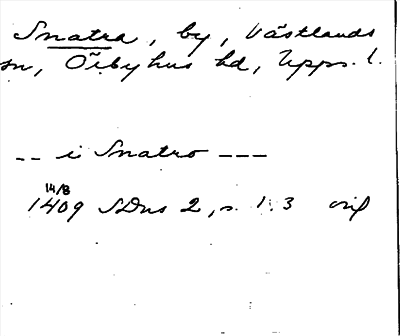 Snatra, by, Västlands
sn, Örbyhus hd, Upps. l.
-- i Snatro ---
14/8
1409 SDns 2, s. 13 orig